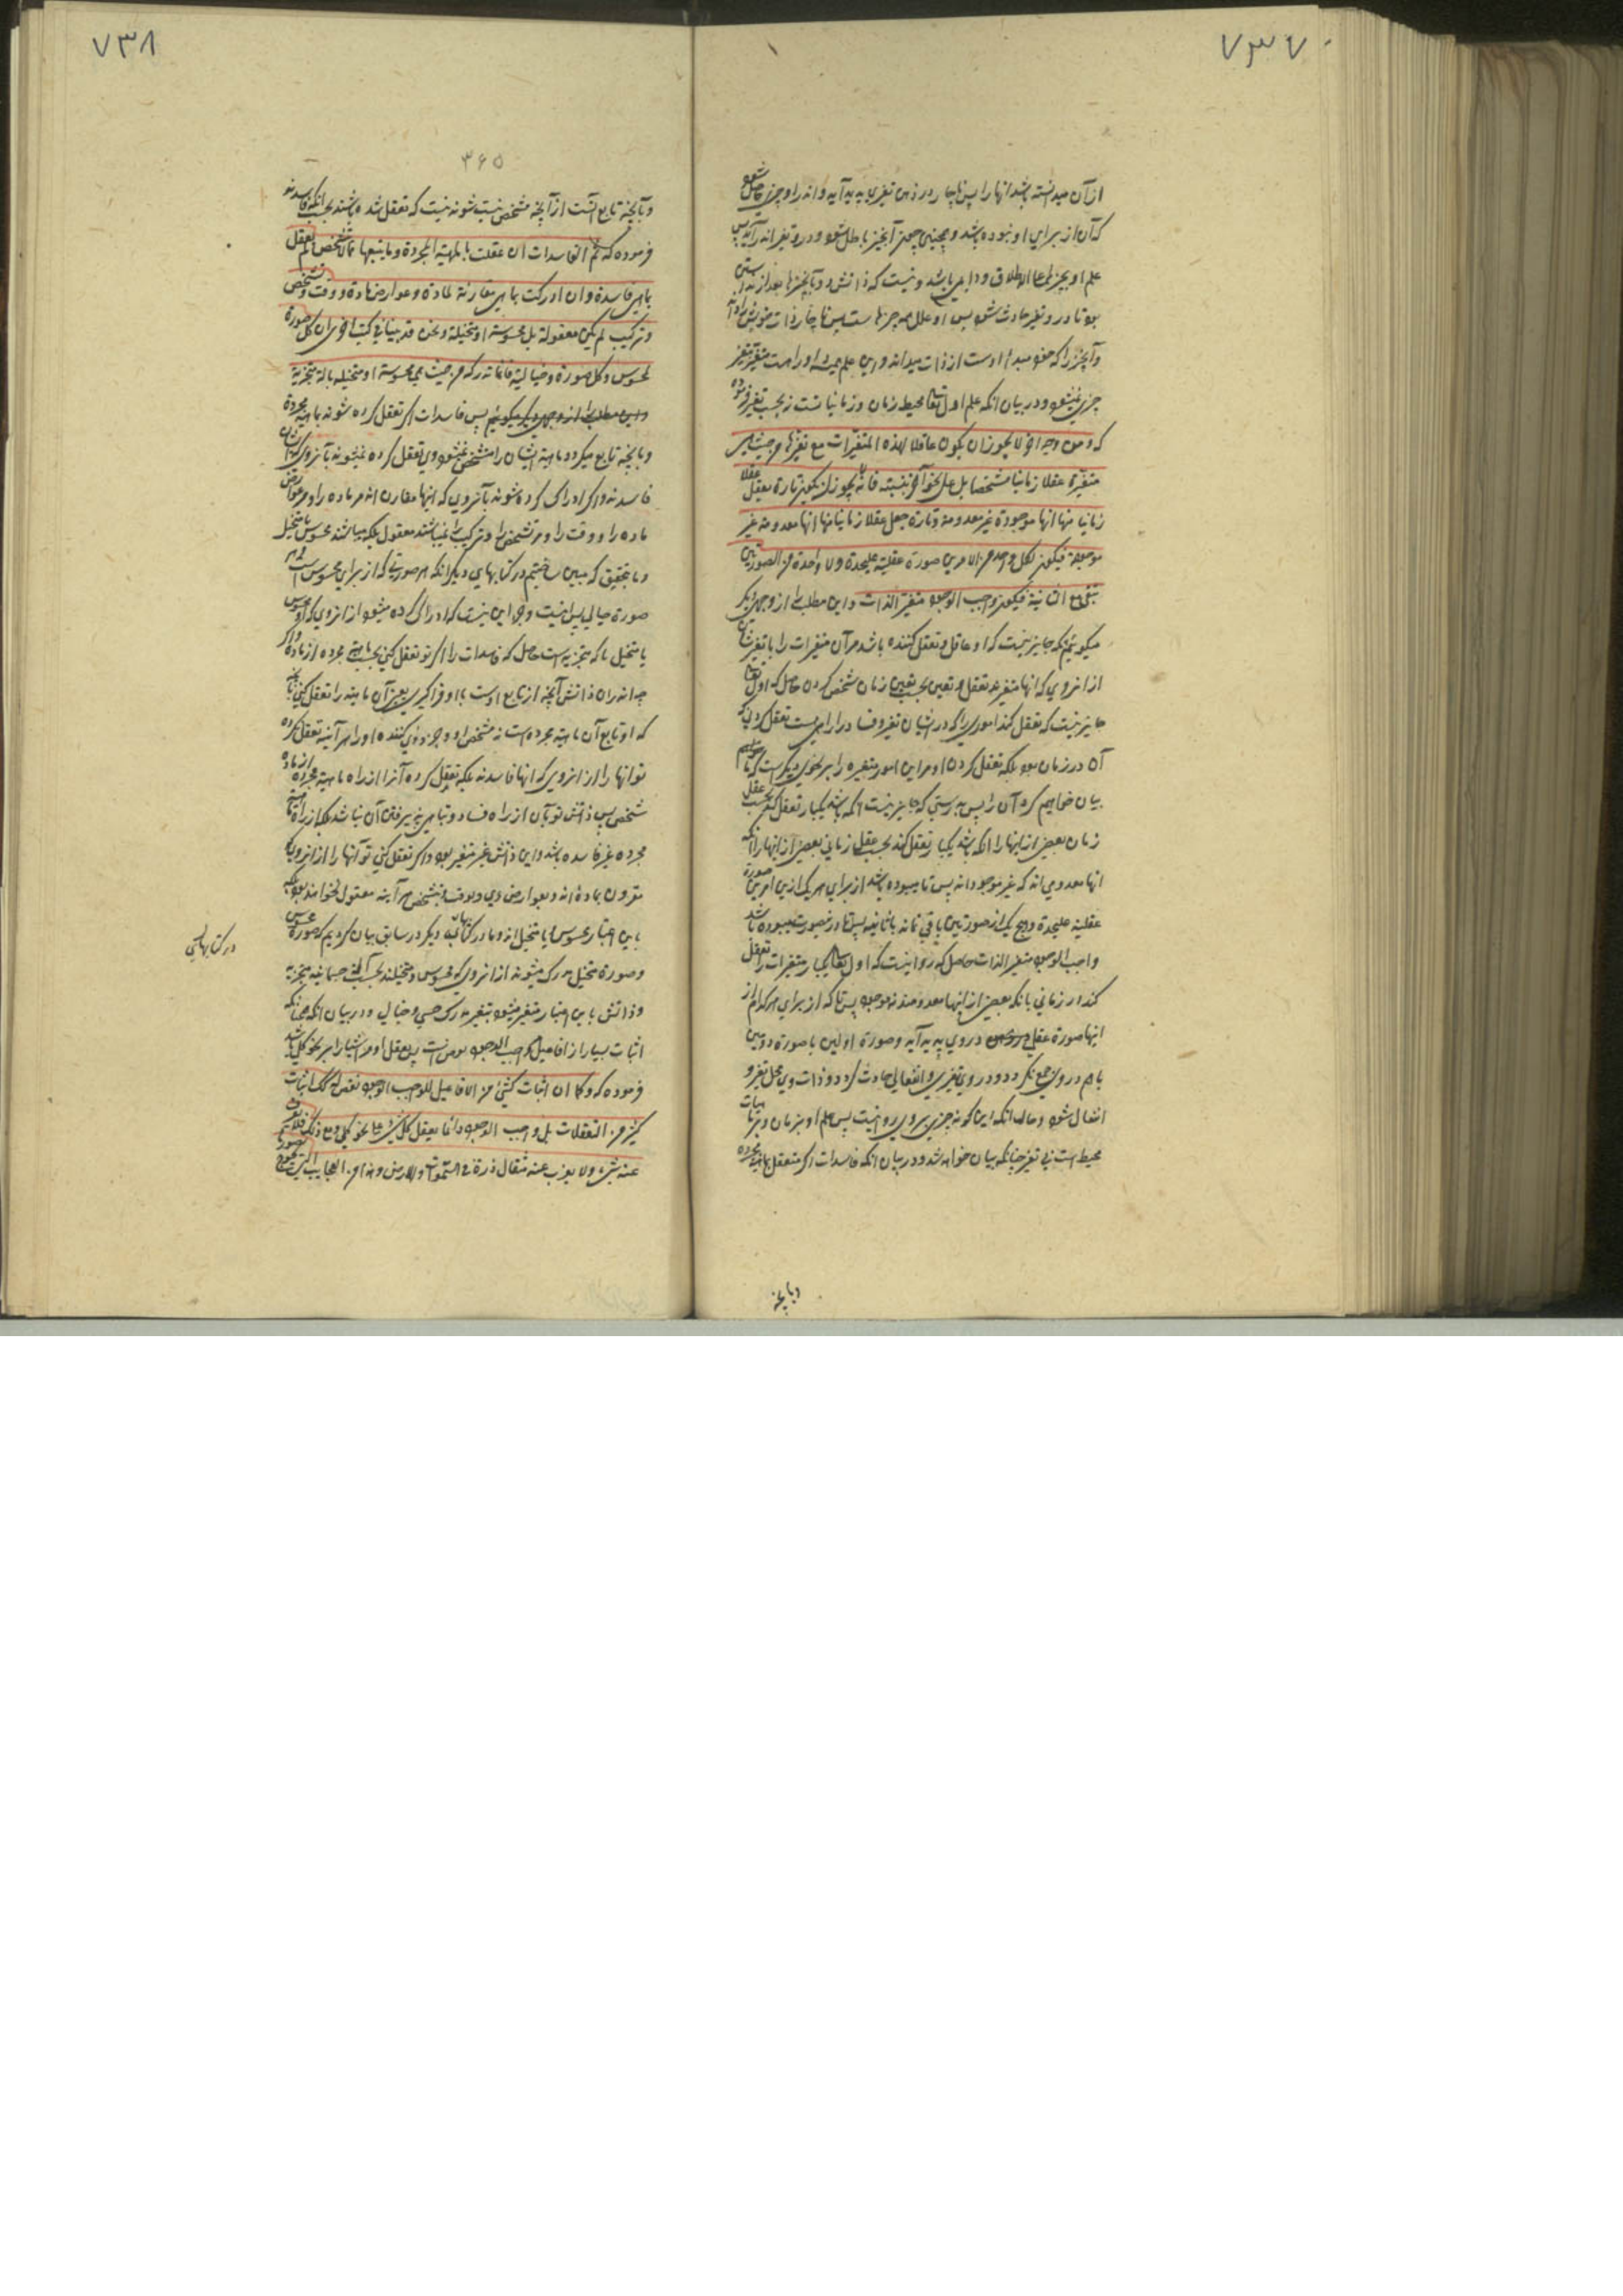 ٧٣٧
از آن میدانسته باشد انها را پس ناچار در ذهن تغیری پدید آید و اندر او چیزی حاصل شود
که آن از برای او نبوده باشد و همچنین چون آنچیز باطل شود در او تغیر اندر آید پس
علم او بچیزها علی الاطلاق و دایمی باشد و نیست که ذاتش دو بآنچیزها بعد از نیستی
بود تا در و تغیر حادث شود پس او علل همه چیزها ست پس ناچار از ذات خویش داند
و آنچیز را که خود مبدا اوست از ذات میداند و این علم همیشه او راست متغیر بتغیر
چیزی نمیشود و در بیان انکه علم اول تعالی محیط زمان و زمانیاتست نه بحسب تغیر فرموده
که و من وجه اخر لا یجوز ان یکون عاقلا لهذه المتغیرات مع تغیرها من حیث هی
متغیرة عقلا زمانیا مشخصا بل علی نحو آخر نبینه فانه لا یجوز ان یکون تارة یعقل عقلا
زمانیا منها انها موجودة غیر معدومة و تارة یعقل عقلا زمانیا منها انها معدومة غیر
موجودة فیکون لکل واحد من الامرین صورة عقلیة علیحدة ولا واحدة من الصورتین
تبقی مع الثانیة فیکون واجب الوجود متغیر الذات و این مطلب را از وجهی دیگر
میگوئیم که جایز نیست که او عاقل و تعقل کننده باشد مر آن متغیرات را با تغیر شان
از انروی که انها متغیرند تعقل و تعین بحسب تعین زمان شخص کردن حاصل که اول تعالی
جایز نیست که تعقل کند اموری را که در ایشان تغیر و فساد را راهی است تعقل کردنی که
آن در زمان بود بلکه تعقل کردن او مر این امور متغیره را بر نحوی دیگر است که ما
بیان خواهیم کرد آن را پس بدرستی که جایز نیست انکه باشد یکبار تعقل کند بحسب عقل
زمان بعضی از اینها را انکه باشد یکبار تعقل کند بحسب عقل زمانی بعضی از اینها را انکه
انها معدومی اند که غیر موجود اند پس تا میبوده باشد از برای هر یک ازین امرین صورة
عقلیة علیحدة و هیچ یک از صورتین باقی نماند با ثانیه پس تا در نصورت میبوده باشد
واجب الوجود متغیر الذات حاصل که روا نیست که اول تعالی یکبار متغیرات را تعقل
کند در زمانی بانکه بعضی از اینها معدومند نه موجود پس تا که از برای هر کدام از
انها صورة عقلی در وی پدید آید و صورة اولین با صورة دومین
باهم در وی جمع نگردد و در وی تغیری و انفعالی حادث گردد و ذات وی محل تغیر و
انفعال شود و حال انکه این گونه چیزی بر وی روا نیست پس علم او بزمان و زمانیات
محیط است بی تغیر چنانکه بیان خواهد شد و در بیان انکه فاسدات اگر متعقل بماهیة مجرده
و بآنچه
٧٣٨
٣۶٥
و بآنچه تابع آنست از آنچه مشخص نیست شوند نیست که تعقل شده باشند بحسب انکه فاسدند
فرموده که ثم الفاسدات ان عقلت بالمهیة المجردة و بما یتبعها مما لا یشخص لم یعقل
بما هی فاسدة و ان ادرکت بما هی مقارنة لمادة و عوارض مادة و وقت و تشخص
و ترکیب لم یکن معقولة بل محسوسة او متخیلة و نحن قد بینا فی کتب اخری ان کل صورة
لمحسوس و کل صورة خیالیة فانما تدرک من حیث هی محسوسة او متخیلة بالة متجزیة
پس فاسدات اگر تعقل کرده شوند بماهیة مجردة
و بآنچه تابع میگردد ماهیة ایشان را مشخص نمیشود وی تعقل کرده نمیشوند بآنروی که ایشان
فاسدند و اگر ادراک کرده شوند بآنروی که اینها مقارن اند مر ماده را و مر عوارض
ماده را و وقت را و مر تشخص را و ترکیب را نمیباشند معقول بلکه میباشند محسوس یا متخیل
و ما بتحقیق که مبین ساختیم در کتابهای دیگر انکه هر صورتی که از برای محسوس است و هر
صورة خیالی پس نیست وجز این نیست که ادراک کرده میشود از انروی که او محسوس
یا متخیل با آلة متجزیه است حاصل که فاسدات را اگر تو تعقل کنی بحسب ماهیتی مجرده از ماده و اگر
چه اندر آن ذاتش آنچه از تابع اوست با او فرا گیری یعنی آن ماهیة را تعقل کنی بآنچه
که او تابع آن ماهیة مجرده است نه مشخص او و جزء وی کننده او را هر آینه تعقل نکرده
تو انها را از انروی که انها فاسدند بلکه تعقل کرده آنرا از راه ماهیة مجرده از ماده
شخص پس ذاتش تو بآن از راه فساد و تباهی پذیرفتن آن نباشد بلکه از راه ماهیة
مجرده غیر فاسده باشد و این ذاتش غیر متغیر بود و اگر تعقل کنی تو آنها را از انروی که
مقرون بماده اند و بعوارض وی و بوقت و بتشخص هر آینه معقول نخواهند بود بلکه
باین اعتبار محسوس یا متخیل اند و ما در کتابهای دیگر در سابق بیان کردیم که صورة محسوس
و صورة متخیل مدرک میشوند از انروی که محسوس و متخیلند بحسب آلتی جسمانیه متجزیه
و ذاتش باین اعتبار متغیر میشود بتغیر مدرک حسی و خیالی و در بیان انکه همچنانکه
اثبات بسیار از افاعیل مر واجب الوجود را نقص است پس تعقل او مر اشیا را بر نحو کلی باشد
فرموده که و کما ان اثبات کثیر من الافاعیل للواجب الوجود نقص له کذلک اثبات
کثیر من التعقلات بل واجب الوجود دائما یعقل کل شیء علی نحو کلی و مع ذلک فلا یعزب
عنه شیء ولا یعزب عنه مثقال ذرة فی السموات و الارض و هذا من العجایب التی یحوج تصورها
در کتابهای